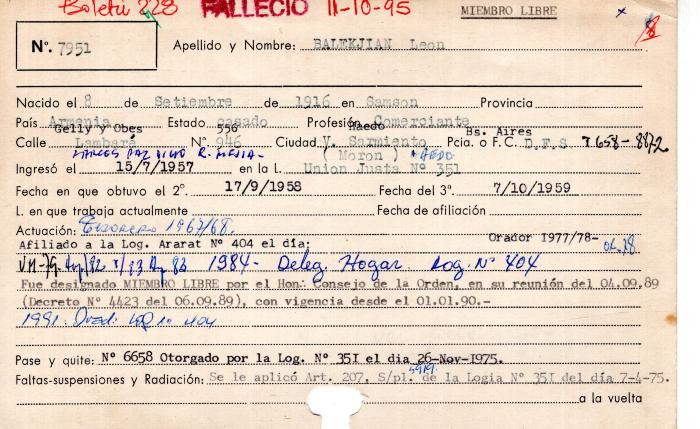 Boletín 228 FALLECIO 11-10-95 MIEMBRO LIBRE x
Nº. 7951
Apellido y Nombre: BALEKJIAN Leon
Nacido el 8 de Setiembre de 1916 en Samson Provincia
País Armenia Estado casado Profesión Comerciante
Gelly y Obes 556 Haedo Bs. Aires
Calle Lambaré Nº 946 Ciudad V. Sarmiento Pcia. o F.C. D.F.S T.658-8872
( Moron ) HAEDO
Ingresó el 15/7/1957 en la L. Union Justa Nº 351
Fecha en que obtuvo el 2º. 17/9/1958 Fecha del 3ª. 7/10/1959
L. en que trabaja actualmente Fecha de afiliación
Actuación: Tesorero 1967/68.
Afiliado a la Log. Ararat Nº 404 el día: Orador I977/78-
1984- Deleg. Hogar. Log. Nº 404
Fue designado MIEMBRO LIBRE por el Hon: Consejo de la Orden, en su reunión del 04.09.89
(Decreto Nº 4423 del 06.09.89), con vigencia desde el 01.01.90.-
1991. Orad. Log nº 404
Pase y quite: Nº 6658 Otorgado por la Log. Nº 35I el dia 26-Nov-I975.
Faltas-suspensiones y Radiación: Se le aplicó Art. 207, S/pl. de la Logia Nº 35I del día 7-4-75.
a la vuelta